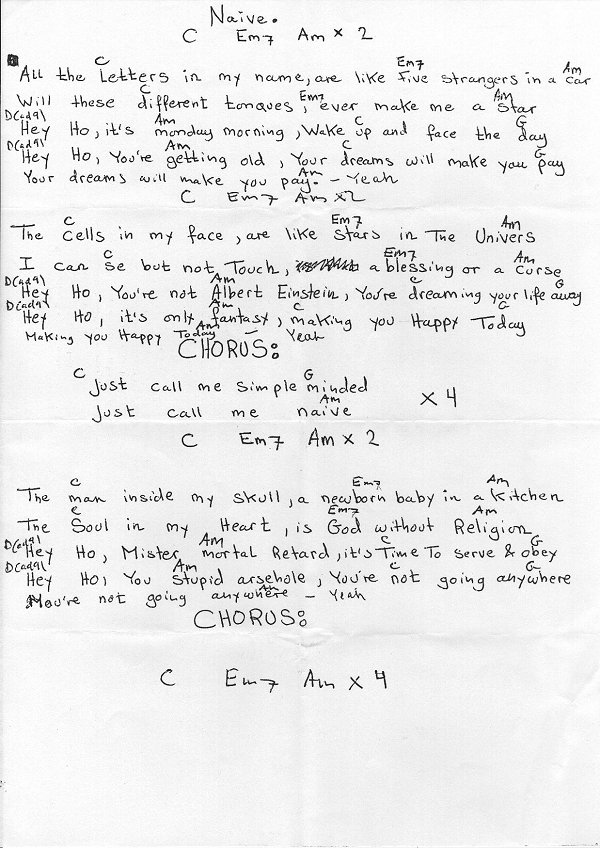 Naive.
C Em7 Am x 2
C Em7 Am
All the Letters in my name, are like five strangers in a car
C Em7 Am
Will these different tonques, ever make me a star
D(ad9) Am C G
Hey Ho, it's monday morning, Wake up and face the day
D(ad9) Am C G
Hey Ho, You're getting old, Your dreams will make you pay
Am
Your dreams will make you pay. - Yeah
C Em7 Am x2
C Em7 Am
The cells in my face, are like stars in The Univers
C Em7 Am
I can se but not Touch, a blessing or a curse
D(ad9) Am C G
Hey Ho, You're not Albert Einstein, You're dreaming your life away
D(ad9) Am C G
Hey Ho, it's only fantasy, making you Happy Today
Am
Making you Happy Today - Yeah
CHORUS:
C G
Just call me simple minded
Am
Just call me naive x 4
C Em7 Am x 2
C Em7 Am
The man inside my skull, a newborn baby in a kitchen
C Em7 Am
The Soul in my Heart, is God without Religion
D(ad9) Am C G
Hey Ho, Mister mortal Retard, it's Time To serve & obey
D(ad9) Am C G
Hey Ho, You stupid arsehole, You're not going anywhere
Am
You're not going anywhere - Yeah
CHORUS:
C Em7 Am x 4